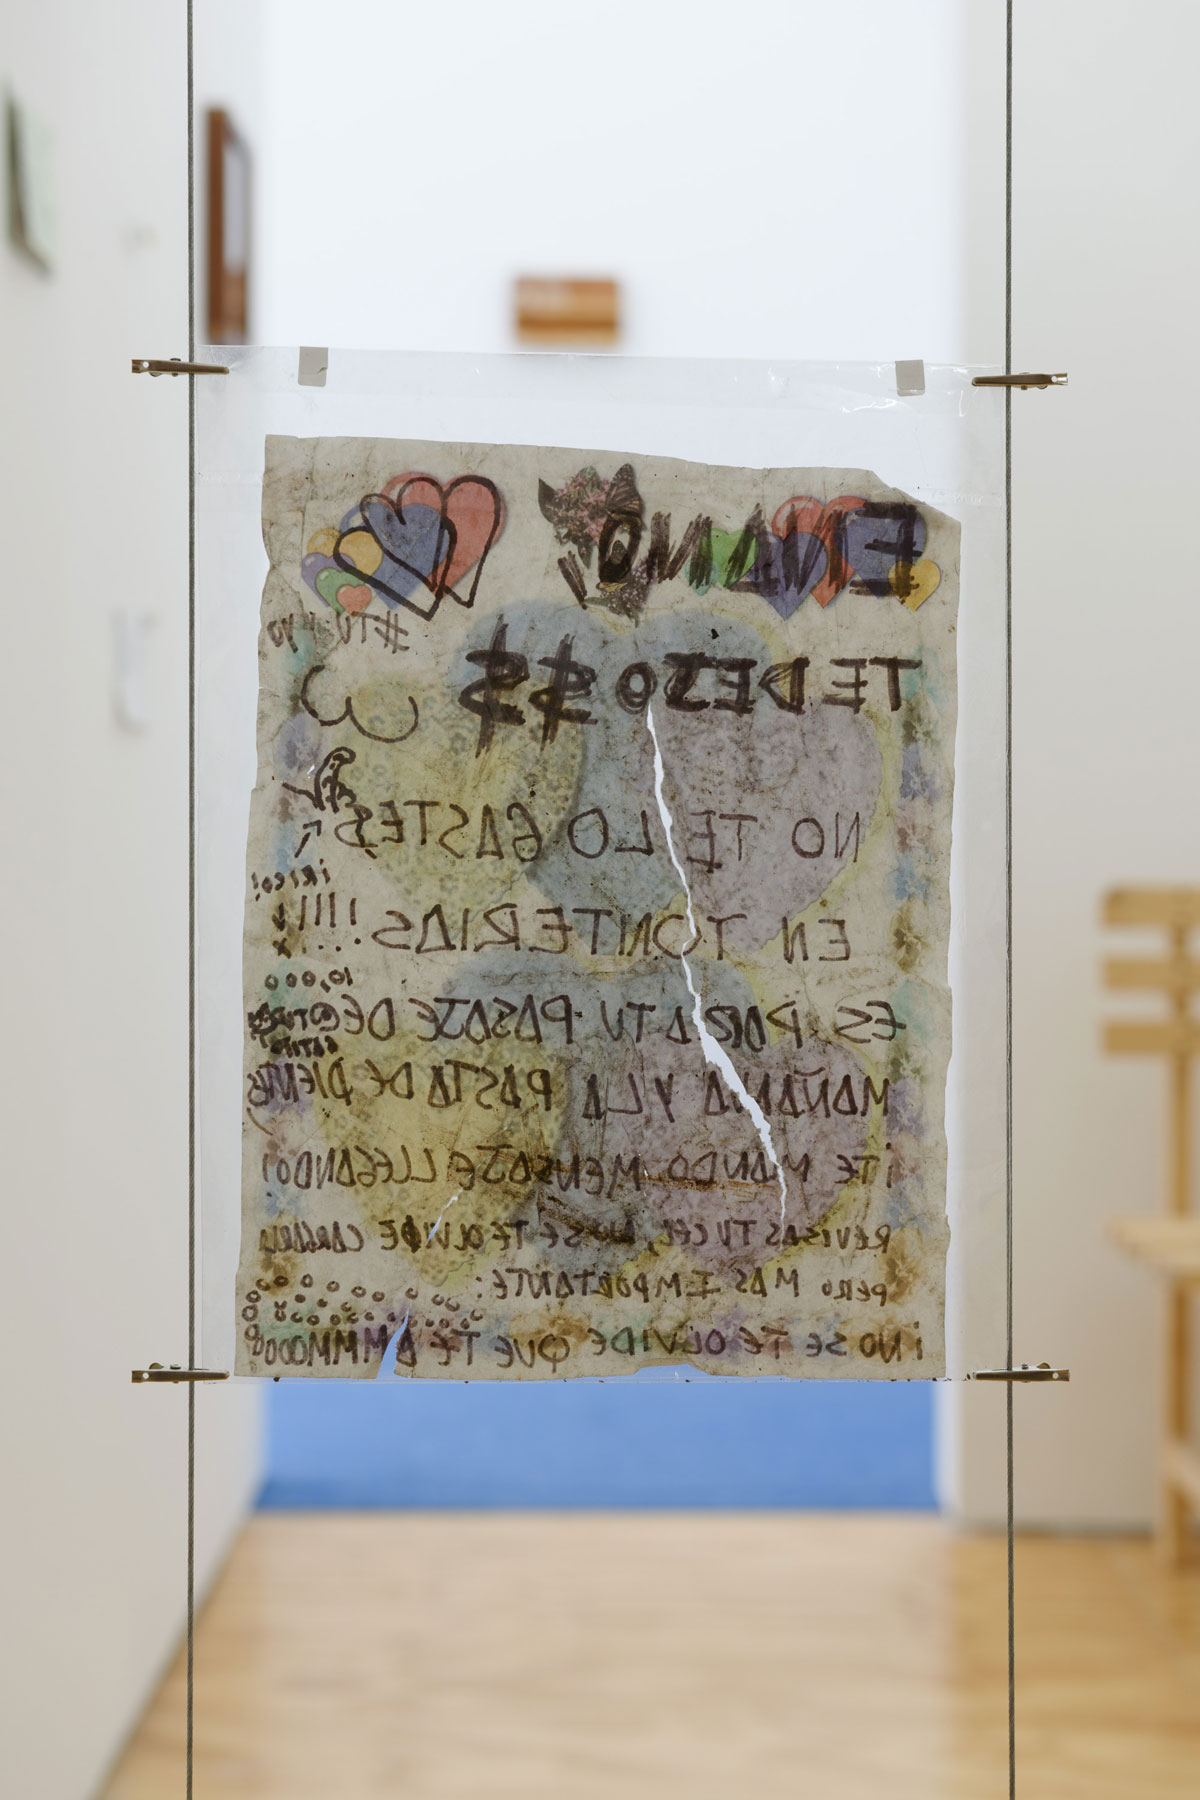 #TU Y yo
TE DEJO $$
NO TE LO GASTES
¡RICO!
EN TONTERIAS !!!!
ES PARA TU PASAJE DE
MAÑANA Y LA PASTA DE DIENTES
¡TE MANDO MENSAJE LLEGANDO!
REVISAS TU CEL, NO SE TE OLVIDE
PERO MAS IMPORTANTE:
¡NO SE TE OLVIDE QUE TE AMMMMOOOO